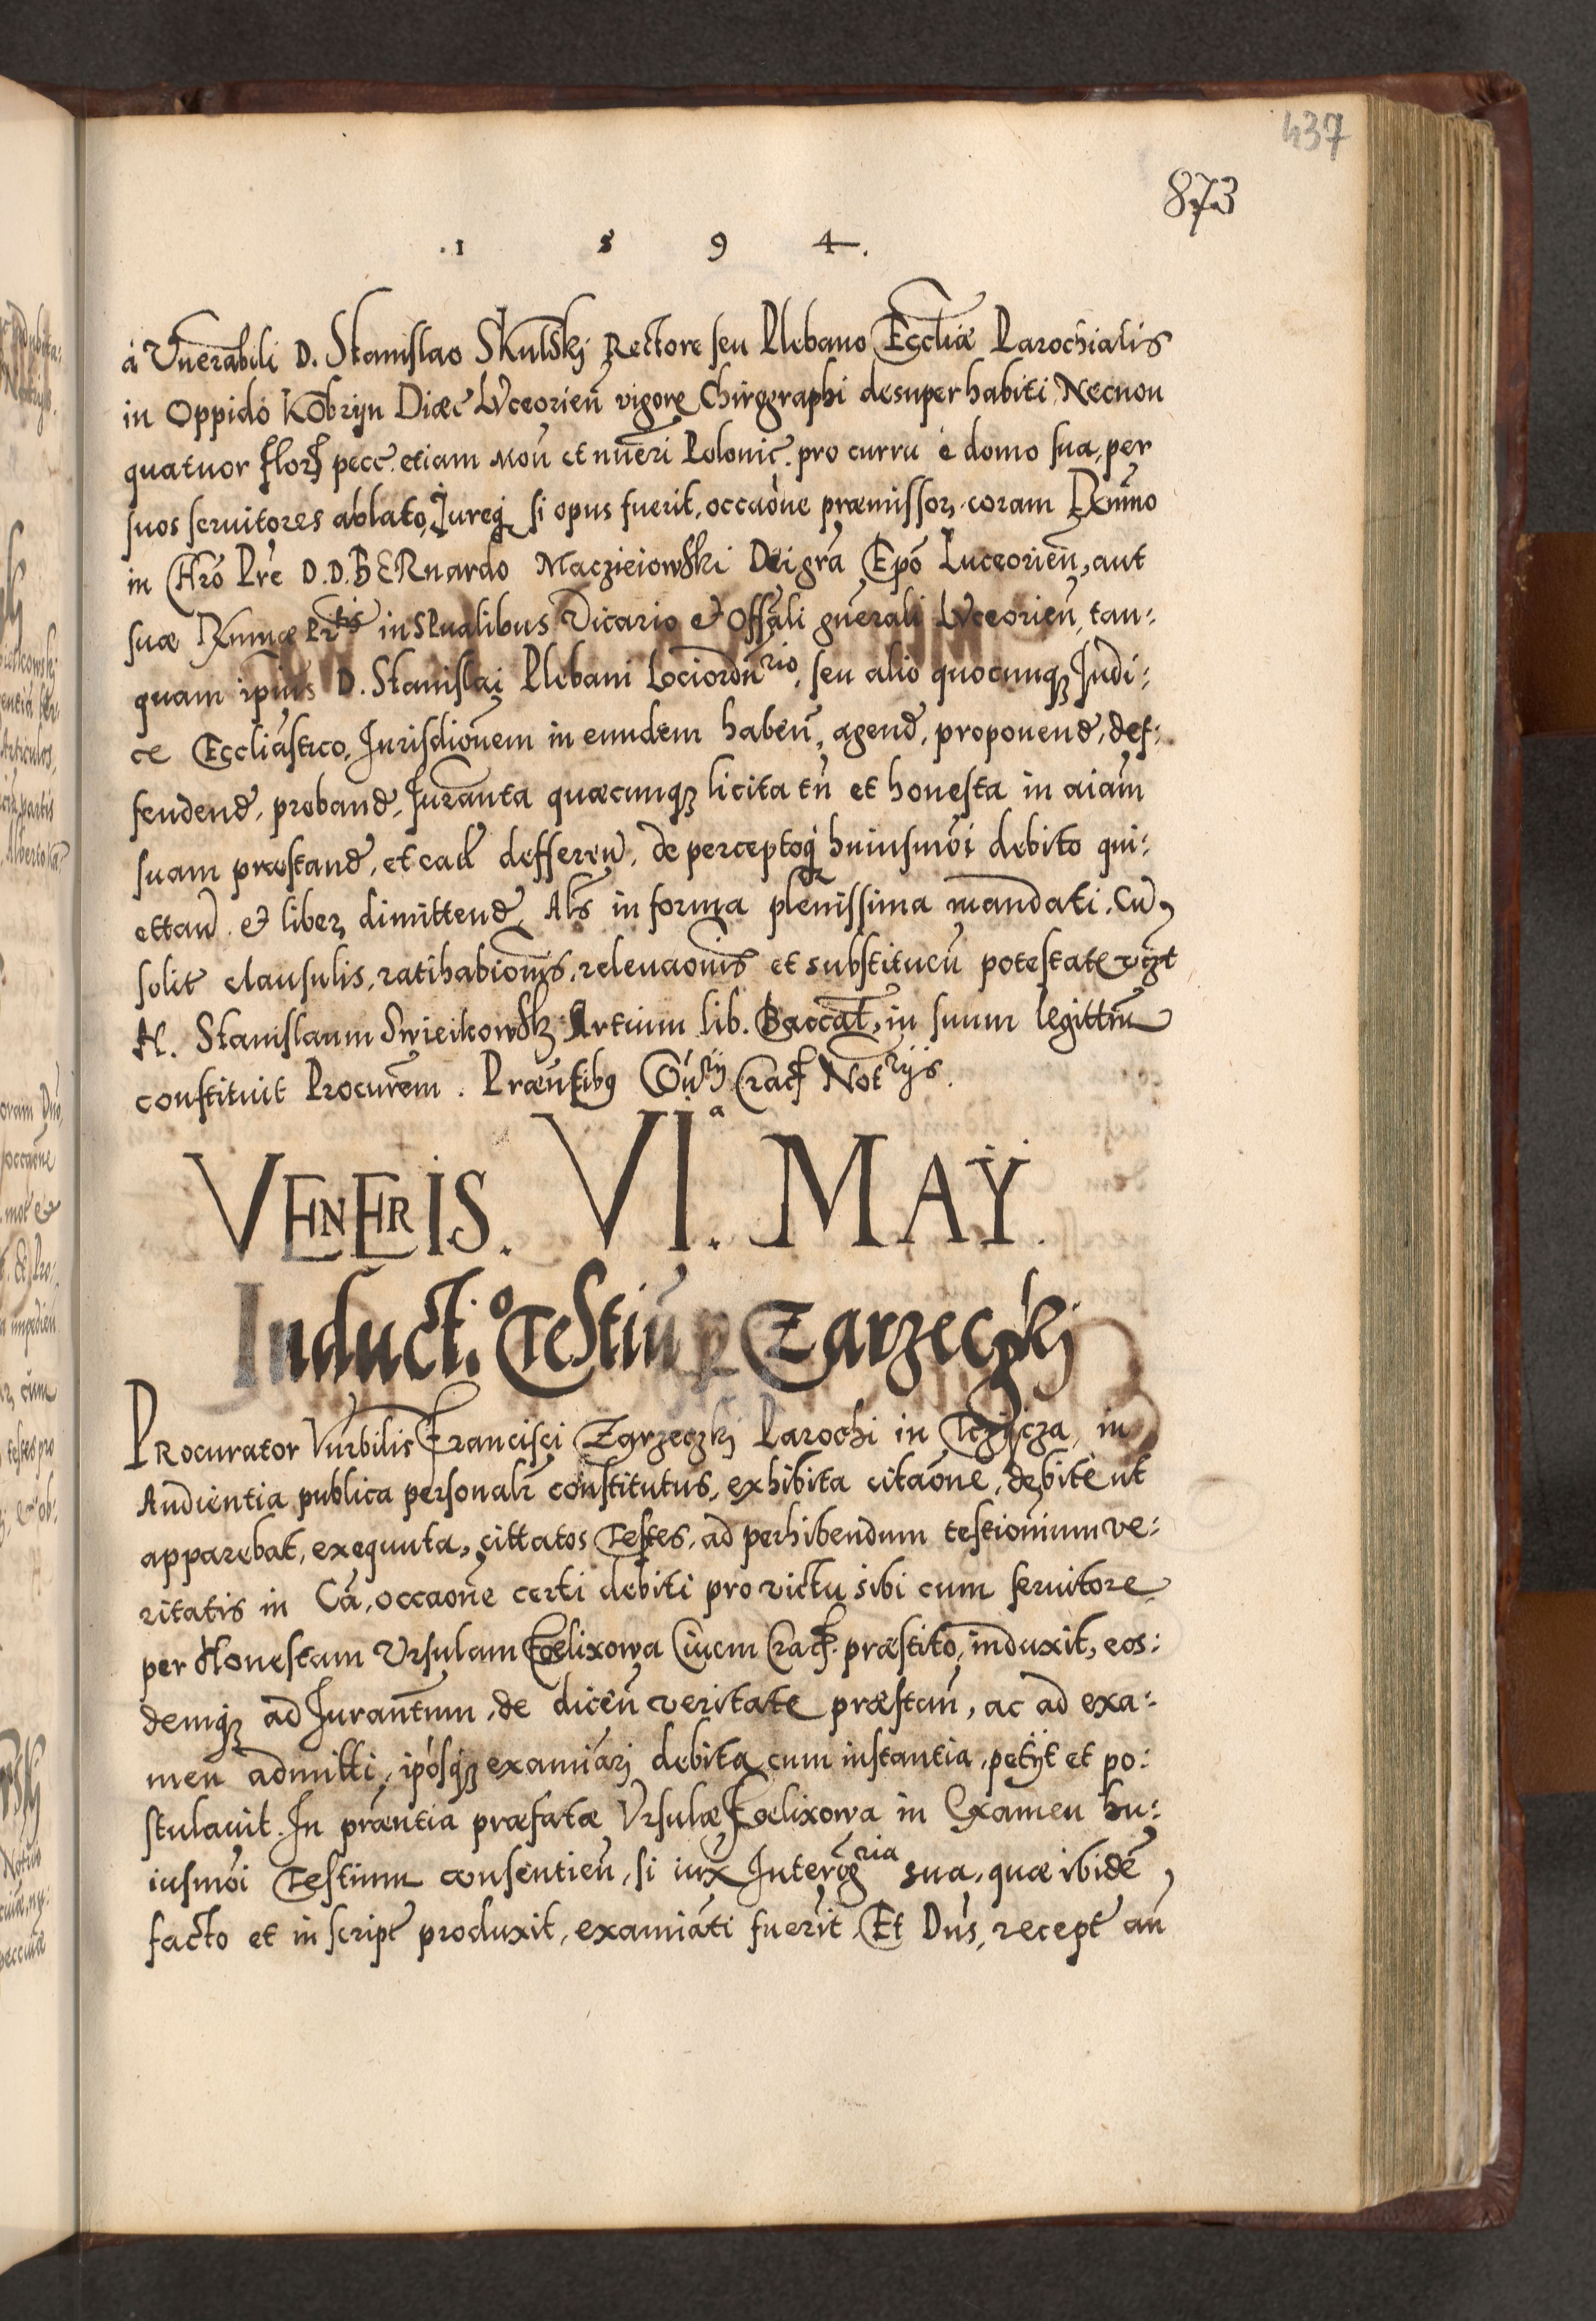 437
873
.1 5 9 4.
à Vnerabili D. Stanislao Skulskj Rectore seu Plebano Eccliæ Parochialis
in Oppido Kobryn Diæc Lvceorien̄ vigore Chirographi desuper habiti, Necnon
quatuor flor pecc. etiam Mon̄ et nūeri Polonic. pro curru è domo sua, per
suos seruitores ablato, Iureq si opus fuerit, occaōne præmissor, coram Rmo
in Chro Pre D. D. BERnardo Maczieiowski Dei gra Epō Luceorien̄, aut
suæ Rmæ Prtis in SPualibus Vicario et Offāli gn̄erali Lvceorien̄, tan:
quam ipius D. Stanislai Plebani Lociordnrio, seu alio quocunq Judi:
ce Eccliāstico, Jurisdiōnem in eundem haben̄, agend, proponend, def:
fendend, proband, Juramta quæcunq licita tn̄ et honesta in aiam
suam præstand, et ead defferen̄, de perceptoq huiusmōi debito qui:
ettan̄ et liber dimittend, Als in forma plenissima mandati. Cū
solit clausulis, ratihabiōnis, releuaōnis et substituen̄ potestate
N. Stanislaum Swieikowsk Artium lib. Baccal, in suum legittm̄
constituit Procurem. Præn̄tibus Crac Notrijs.
VENERIS. VIa. MAŸ.
Induct.o Testiū per Zarzeczkj
PRocurator Vnrbilis Francisci Zarzeczkj Parochi in in
Audientia publica personalr constitutus, exhibita citaōne, debite ut
apparebat, exequuta, cittatos Testes, ad perhibendum testiōnium ve:
ritatis in Cā, occaōne certi debiti pro victu sibi cum seruitore
per Honestam Vrsulam Foelixowa Ciuem Crac. præstito, induxit, eos:
demq ad Juramtum, de dicen̄ veritate præstan̄, ac ad exa:
men admitti, ipōsq examiārj debita cum instantia, petijt et po:
stulauit. In præn̄tia præfatæ Vrsulæ Foelixowa in Examen hu:
iusmōi Testium consentien̄, si iux Interogria sua, quæ ibidē
facto et in script produxit, examiāti fuerit. Et Dn̄s, recept an̄